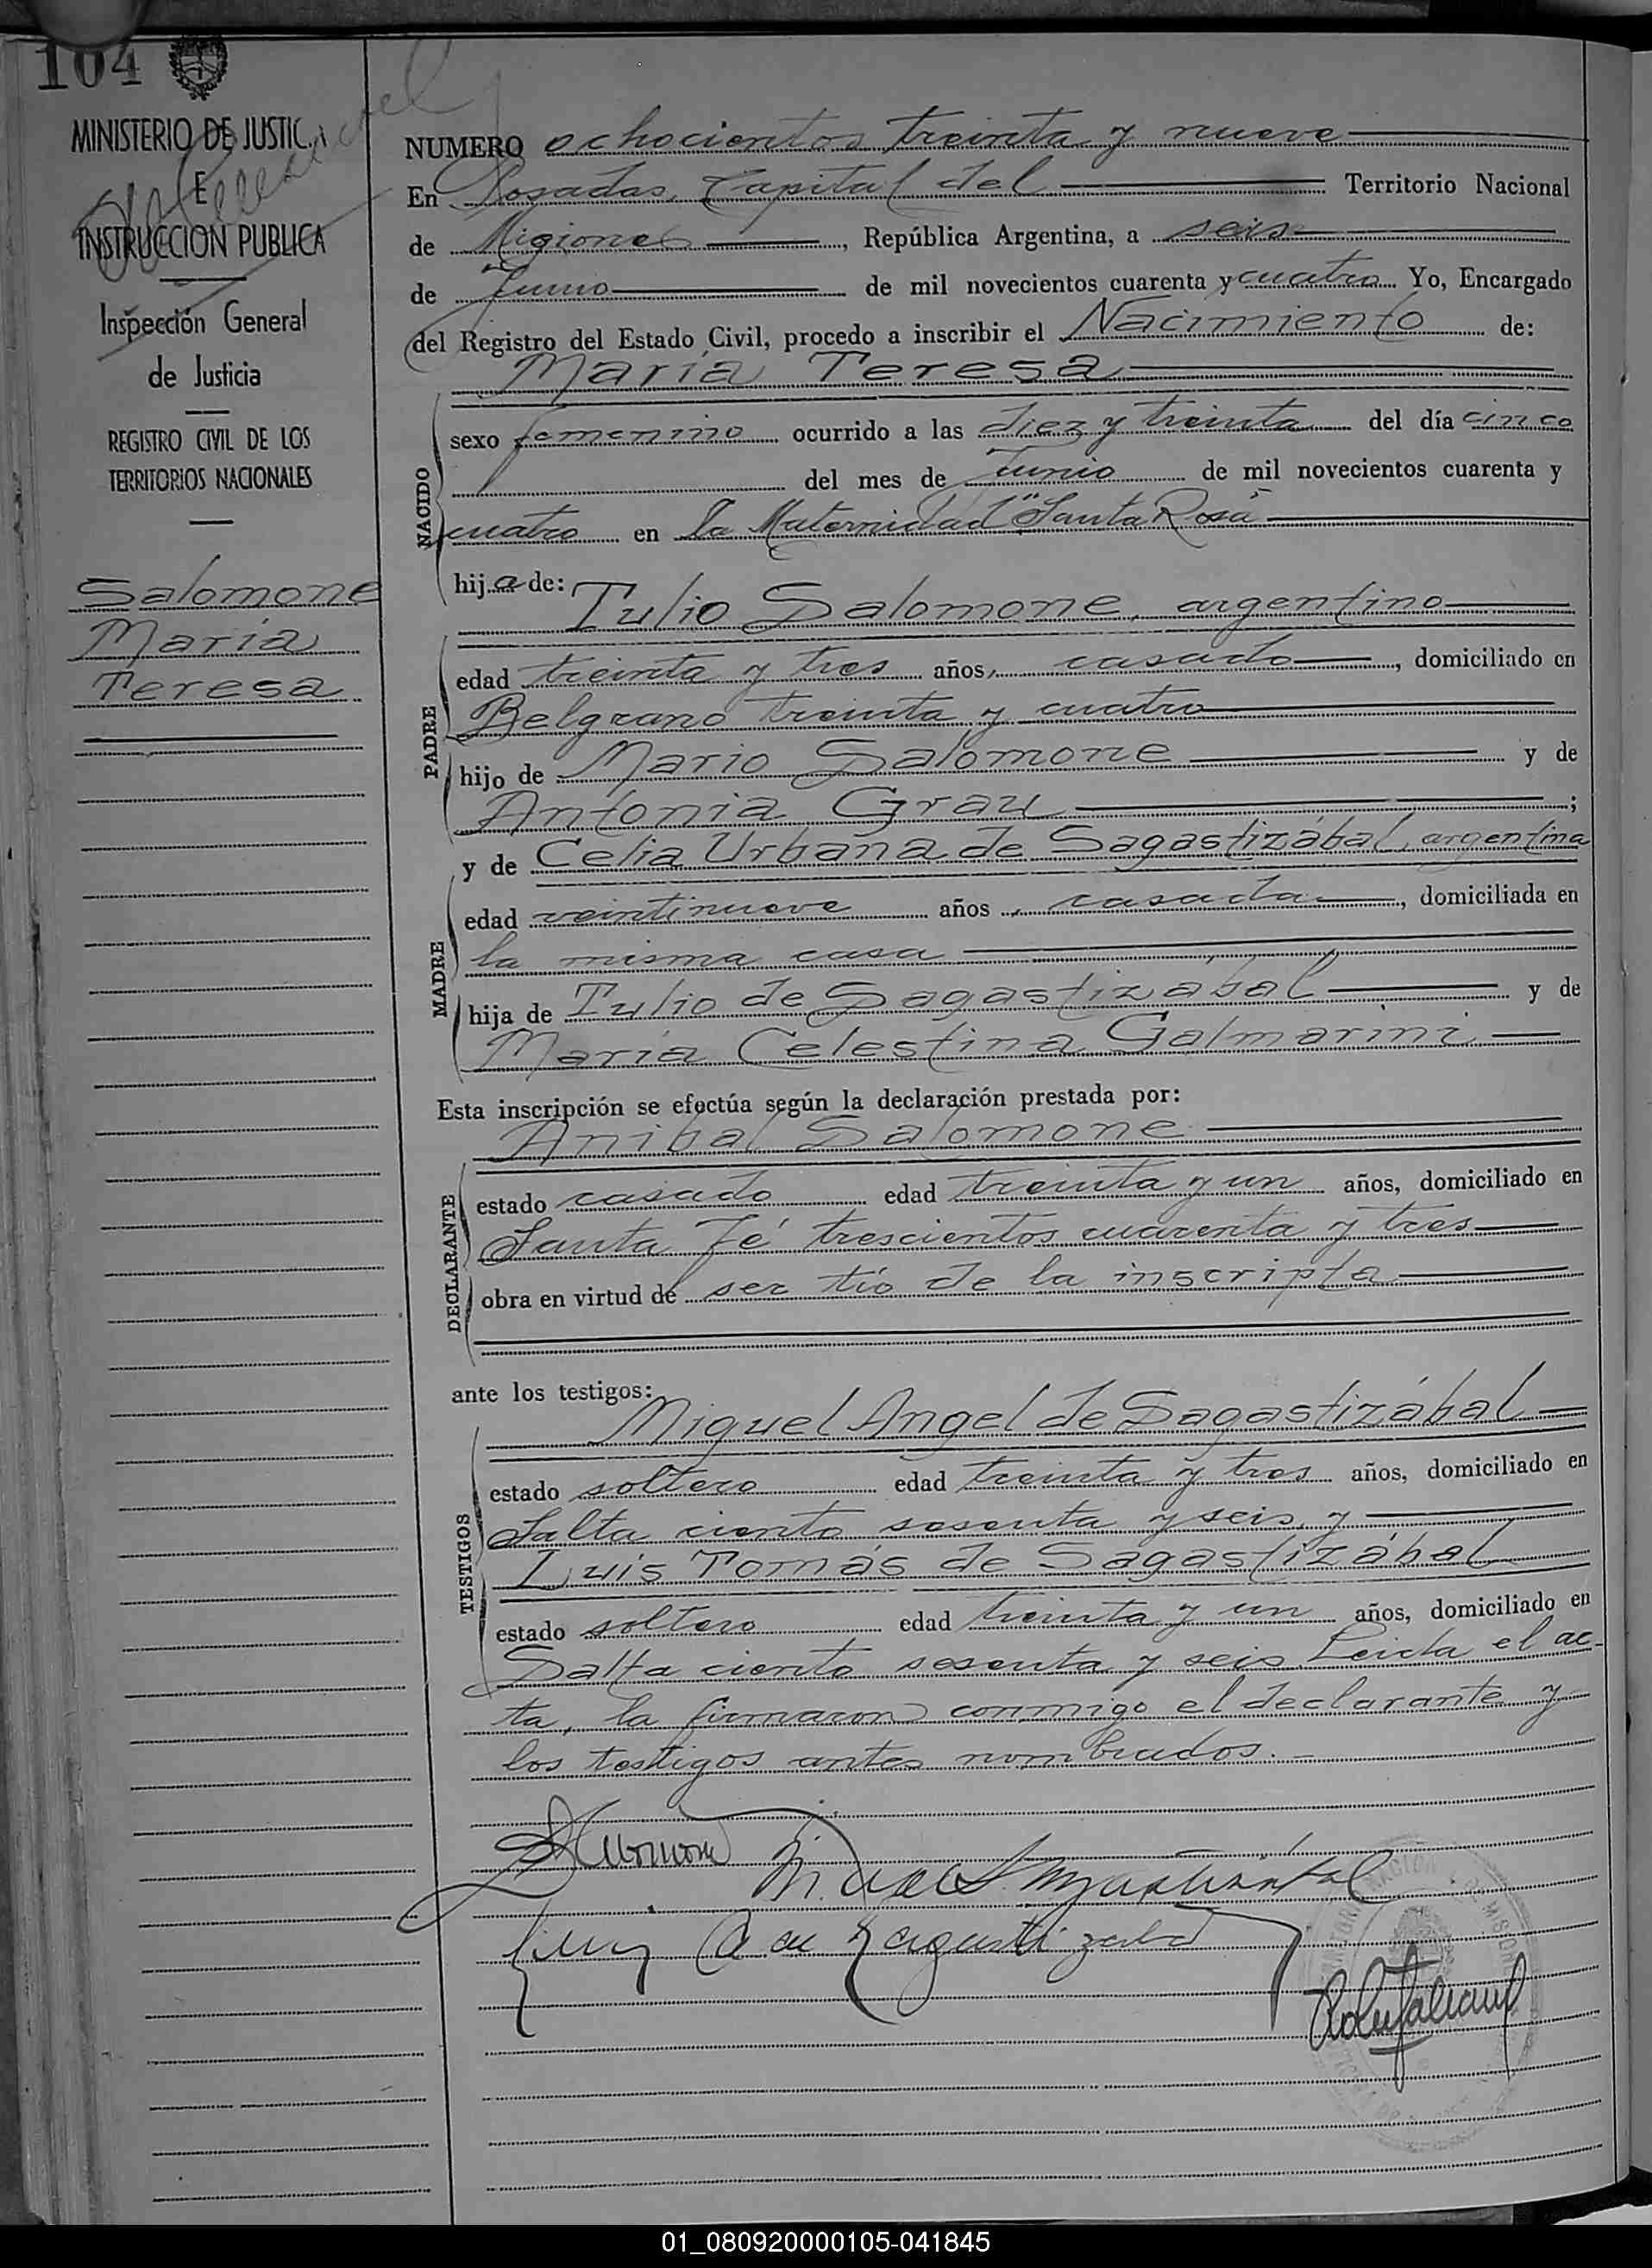 104
MINISTERIO DE JUSTICIA
E
INSTRUCCION PUBLICA
Inspección General
de Justicia
REGISTRO CIVIL DE LOS
TERRITORIOS NACIONALES
Salomone
María
Teresa
NUMERO ochocientos treinta y nueve
En Posadas, Capital del Territorio Nacional
de Misiones, República Argentina, a seis
de Junio de mil novecientos cuarenta y cuatro Yo, Encargado
del Registro del Estado Civil, procedo a inscribir el Nacimiento de:
María Teresa
NACIDO
sexo femenino ocurrido a las diez y treinta del día cinco
del mes de Junio de mil novecientos cuarenta y
cuatro en la Maternidad "Santa Rosa"
hija de:
Tulio Salomone, argentino
PADRE
edad treinta y tres años, casado, domiciliado en
Belgrano treinta y cuatro
hijo de Mario Salomone y de
Antonia Grau;
y de Celia Urbana de Sagastizábal, argentina
MADRE
edad veintinueve años, casada, domiciliada en
la misma casa
hija de Tulio de Sagastizabal y de
María Celestina Galmarini
Esta inscripción se efectúa según la declaración prestada por:
Anibal Salomone
DECLARANTE
estado casado edad treinta y un años, domiciliado en
Santa Fé trescientos cuarenta y tres
obra en virtud de ser tío de la inscripta
ante los testigos:
Miguel Angel de Sagastizábal
TESTIGOS
estado soltero edad treinta y tres años, domiciliado en
Salta ciento sesenta y seis, y
Luis Tomás de Sagastizábal
estado soltero edad treinta y un años, domiciliado en
Salta ciento sesenta y seis. Leida el ac-
ta, la firmaron conmigo el declarante y
los testigos antes nombrados.
01_080920000105-041845